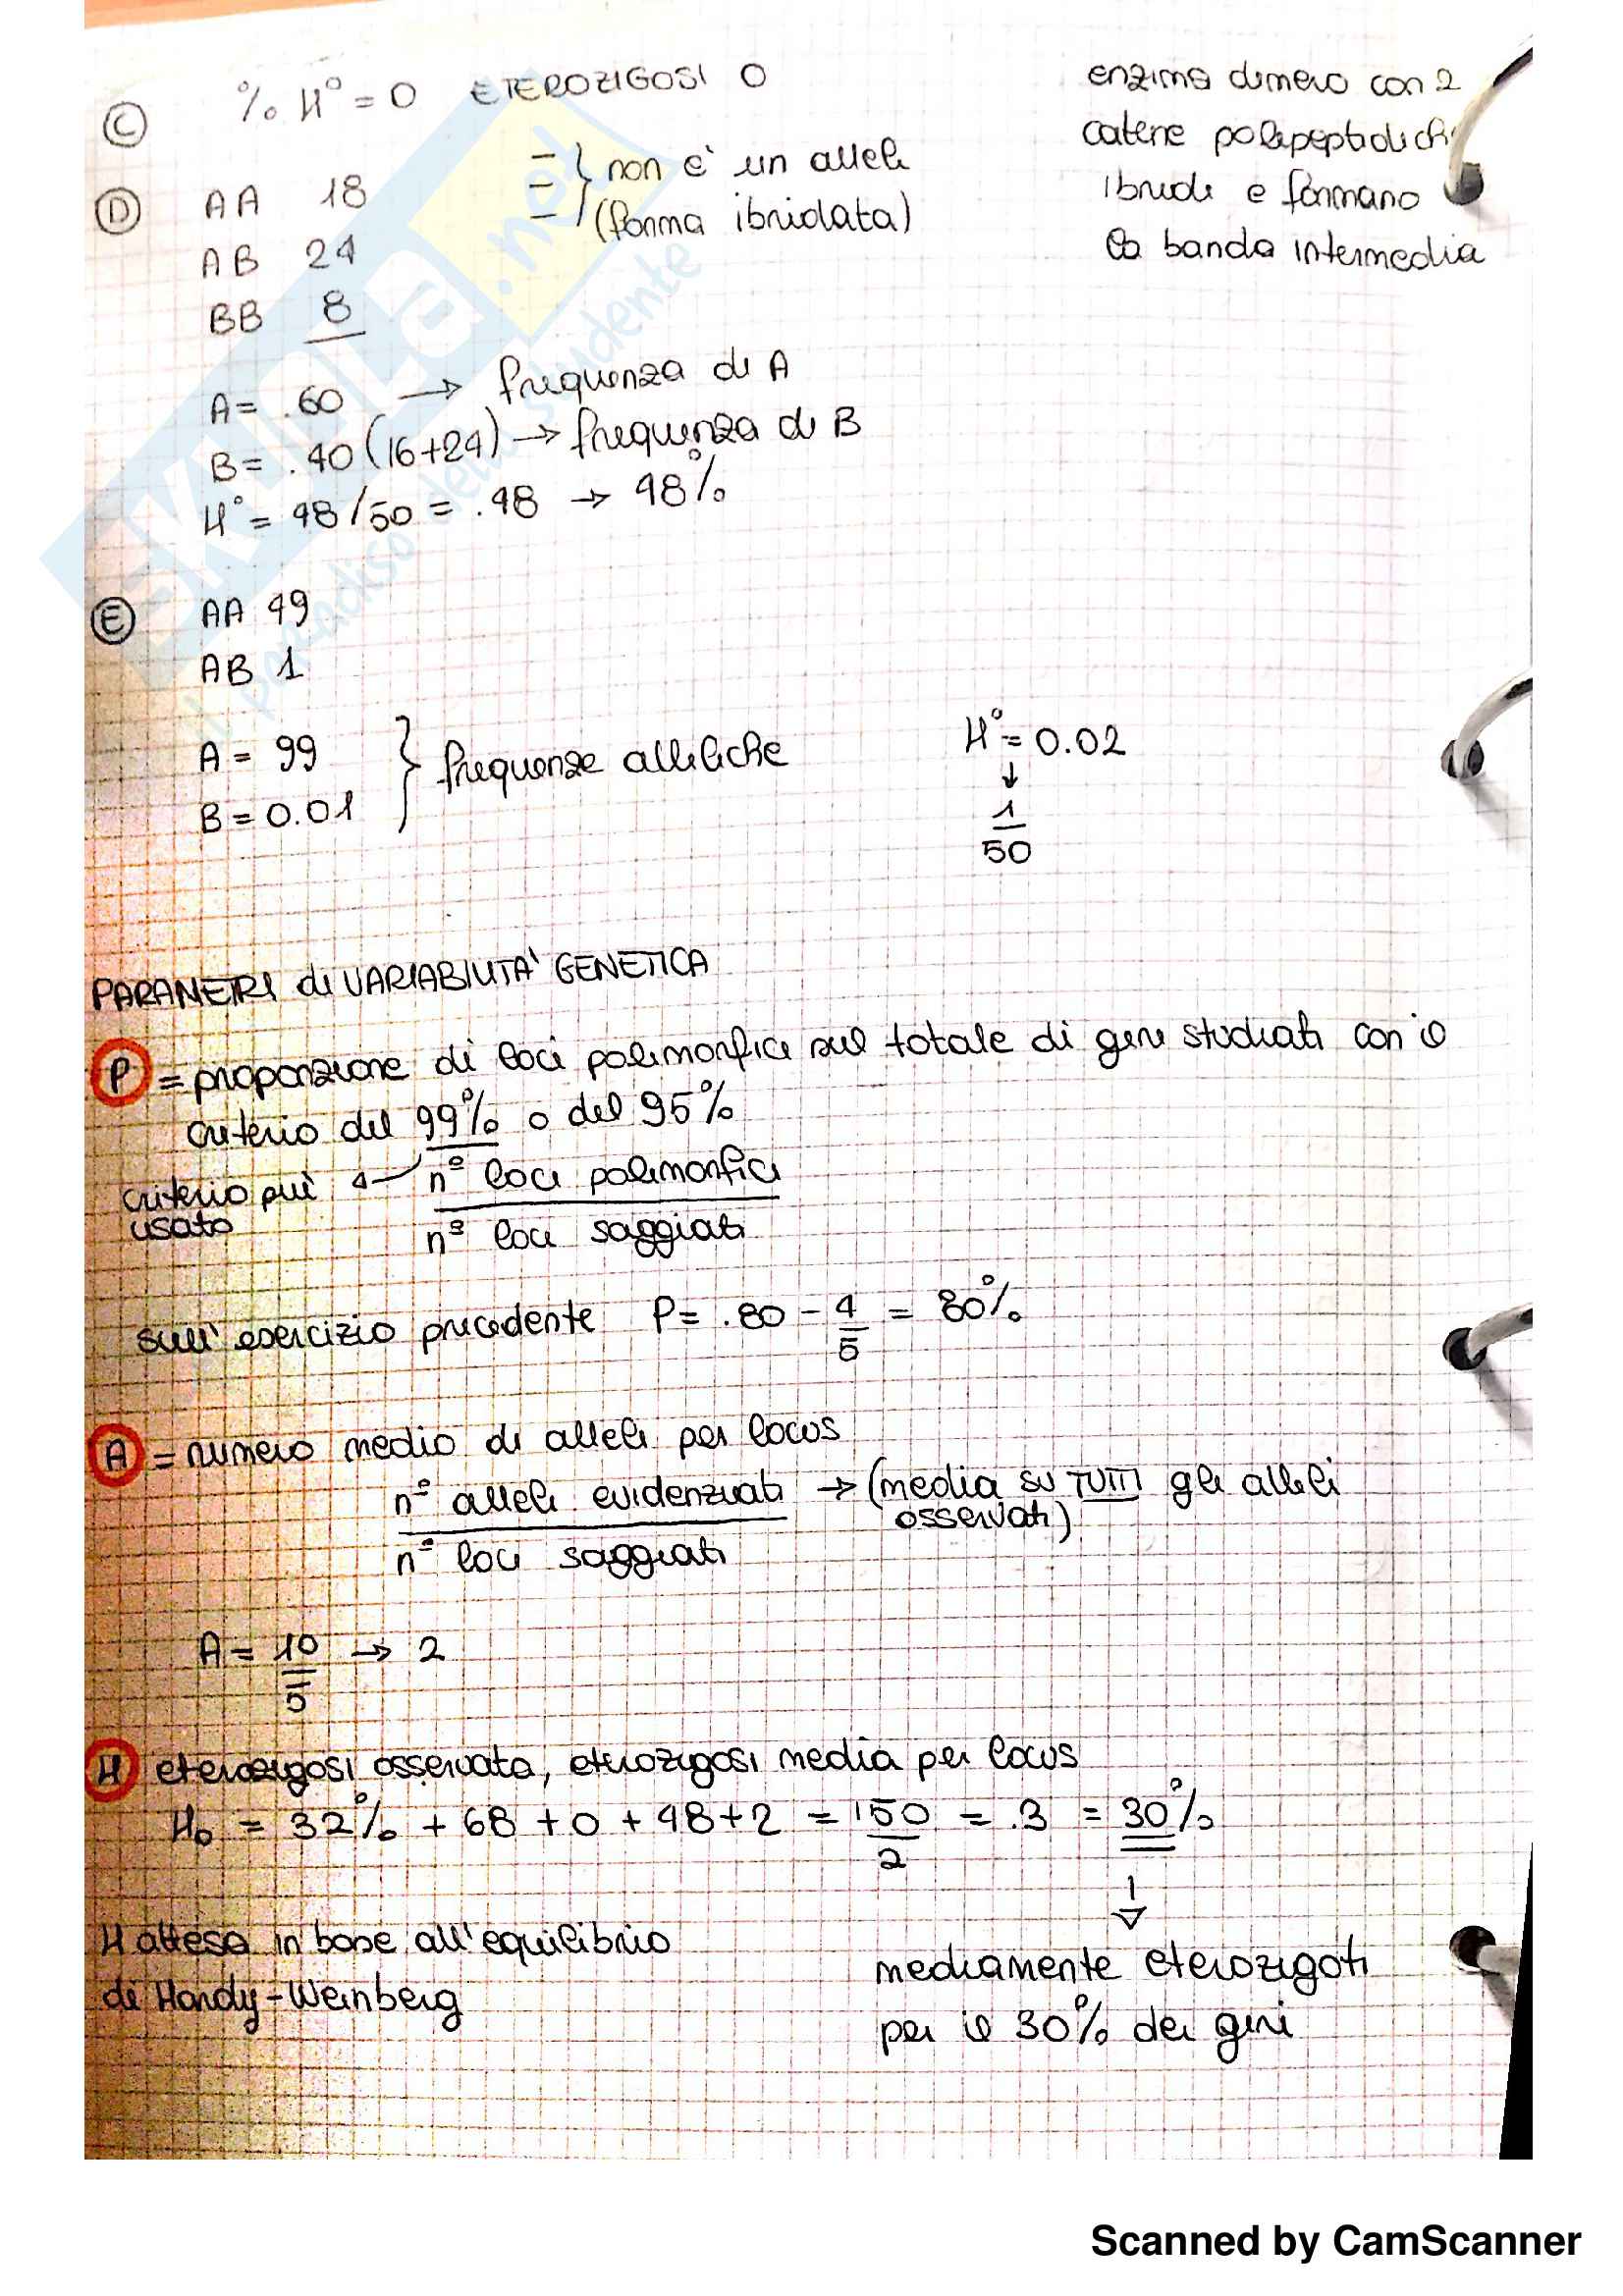 C % H° = 0 ETEROZIGOSI 0
enzima dimero con 2
catene polipeptidiche
ibride e formano
la banda intermedia
D AA 18
AB 24
BB 8
} non è un alleli
(forma ibridata)
A = .60 → frequenza di A
B = .40 (16+24) → frequenza di B
H° = 48/50 = .48 → 48%
E AA 49
AB 1
A = 99
B = 0.01
} frequenze alleliche
H° = 0.02
↓
1
50
PARAMETRI di VARIABILITA' GENETICA
P = proporzione di loci polimorfici sul totale di geni studiati con il
criterio del 99% o del 95%
criterio più
usato
n° loci polimorfici
n° loci saggiati
sull'esercizio precedente P = .80 - 4/5 = 80%
A = numero medio di alleli per locus
n° alleli evidenziati → (media su TUTTI gli alleli
osservati)
n° loci saggiati
A = 10/5 → 2
H eterozigosi osservata, eterozigosi media per locus
Ho = 32% + 68 + 0 + 48 + 2 = 150/2 = .3 = 30%
H attesa in base all'equilibrio
di Hardy-Weinberg
mediamente eterozigoti
per il 30% dei geni
SKUOLA.net
il paradiso dello studente
Scanned by CamScanner